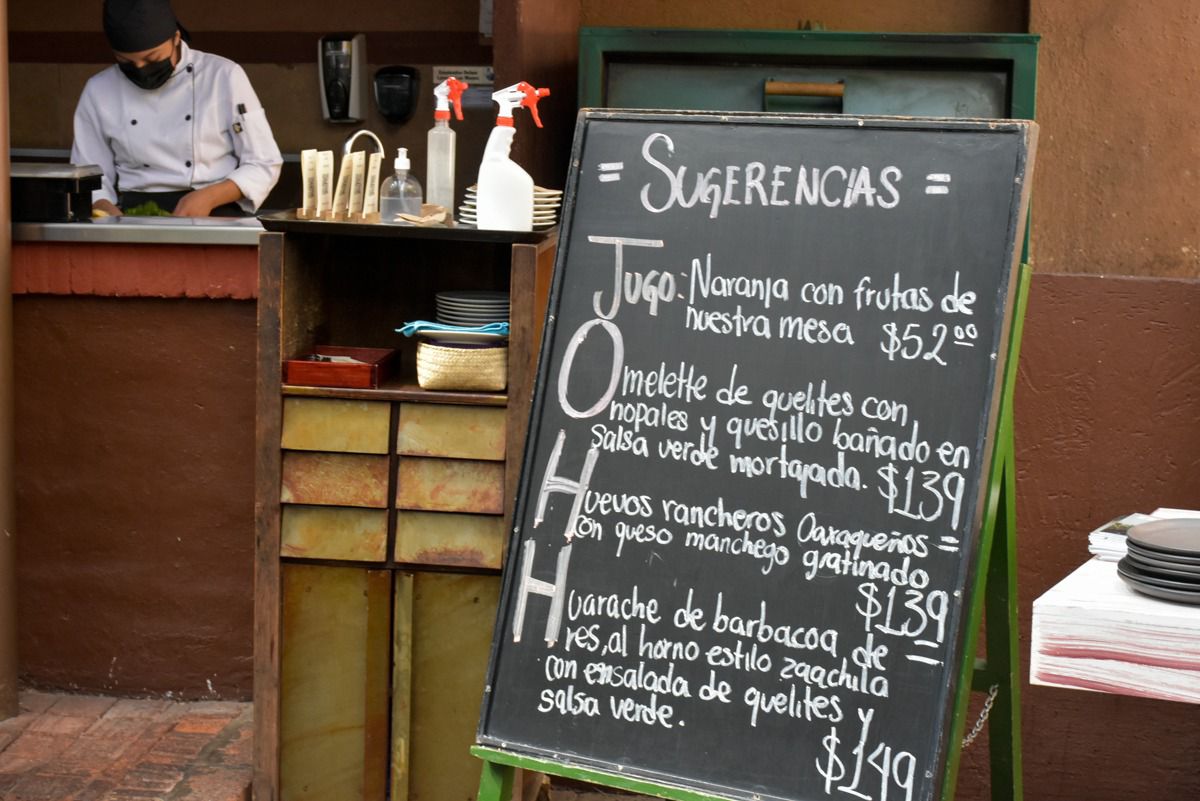 = SUGERENCIAS =
JUGO: Naranja con frutas de
nuestra mesa $52.00
Omelette de quelites con
nopales y quesillo bañado en
salsa verde mortajada. $139
Huevos rancheros Oaxaqueños =
con queso manchego gratinado
$139
Huarache de barbacoa de
res, al horno estilo zaachila
con ensalada de quelites y
salsa verde.
$149